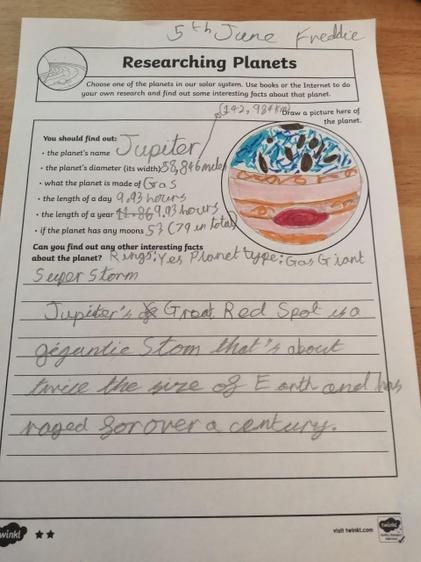 5th June Freddie
Researching Planets
Choose one of the planets in our solar system. Use books or the Internet to do
your own research and find out some interesting facts about that planet.
(142,984km)
Draw a picture here of
the planet.
You should find out:
• the planet's name Jupiter
• the planet's diameter (its width) 58,846 miles
• what the planet is made of Gas
• the length of a day 9.93 hours
• the length of a year 11.86 9.93 hours
• if the planet has any moons 53 (79 in total)
Can you find out any other interesting facts
about the planet? Rings: Yes Planet type: Gas Giant
Super Storm
Jupiter's Great Red Spot is a
gigantic Stom that's about
twice the size of Earth and has
raged for over a century.
twinkl
visit twinkl.com
twinkl